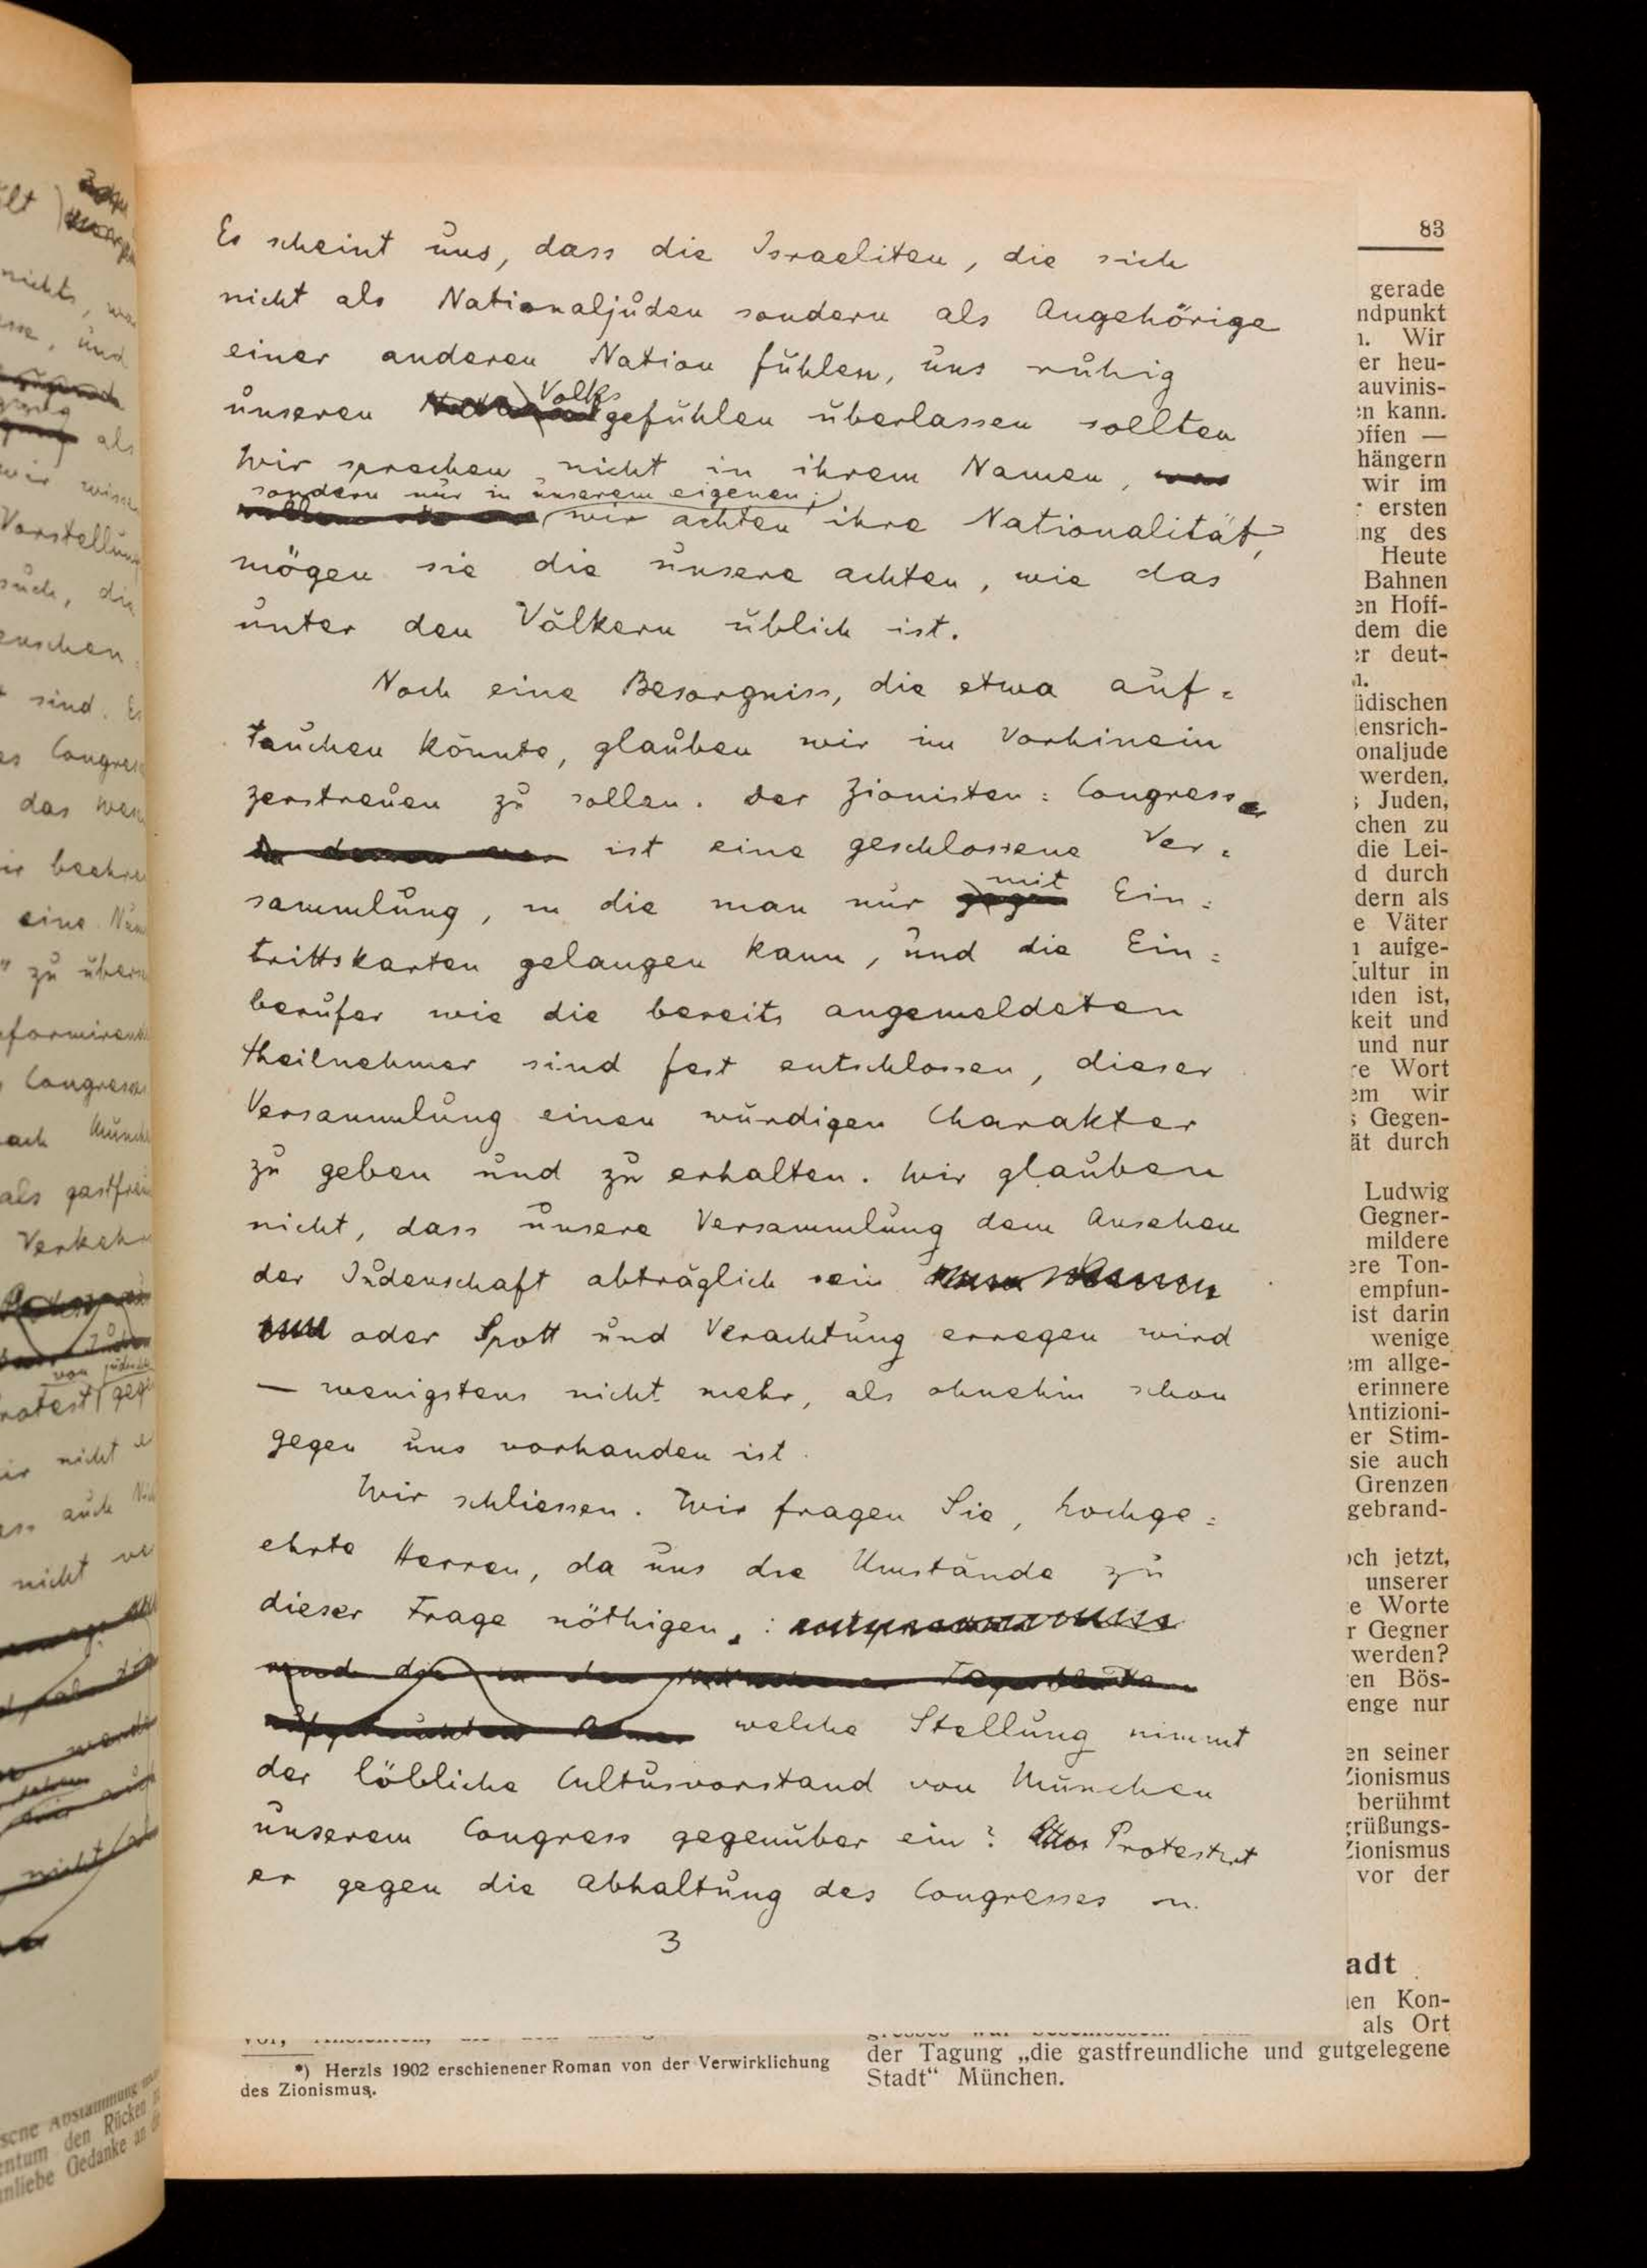 Es scheint uns, dass die Israeliten, die sich
nicht als Nationaljuden sondern als Angehörige
einer anderen Nation fühlen, uns ruhig
unseren Volksgefühlen überlassen sollten
Wir sprechen nicht in ihrem Namen,
sondern nur in unserem eigenen;
wir achten ihre Nationalität,
mögen sie die unsere achten, wie das
unter den Völkern üblich ist.
Noch eine Besorgniss, die etwa auf=
tauchen könnte, glauben wir im Vorhinein
zerstreuen zu sollen. Der Zionisten=Congress
ist eine geschlossene Ver=
sammlung, in die man nur mit Ein=
trittskarten gelangen kann, und die Ein=
berufer wie die bereits angemeldeten
Theilnehmer sind fest entschlossen, dieser
Versammlung einen würdigen Charakter
zu geben und zu erhalten. Wir glauben
nicht, dass unsere Versammlung dem Ansehen
der Judenschaft abträglich sein
oder Spott und Verachtung erregen wird
— wenigstens nicht mehr, als ohnehin schon
gegen uns vorhanden ist.
Wir schliessen. Wir fragen Sie, hochge=
ehrte Herren, da uns die Umstände zu
dieser Frage nöthigen:
welche Stellung nimmt
der löbliche Cultusvorstand von München
unserem Congress gegenüber ein? Protestirt
er gegen die Abhaltung des Congresses in
3
*) Herzls 1902 erschienener Roman von der Verwirklichung
des Zionismus.
der Tagung „die gastfreundliche und gutgelegene
Stadt“ München.
83
gerade
ndpunkt
n. Wir
er heu-
auvinis-
en kann.
offen —
hängern
wir im
ersten
ng des
Heute
Bahnen
en Hoff-
dem die
er deut-
n.
üdischen
ensrich-
onaljude
werden,
; Juden,
chen zu
die Lei-
d durch
dern als
e Väter
aufge-
Kultur in
nden ist,
keit und
und nur
re Wort
em wir
s Gegen-
ät durch
Ludwig
Gegner-
mildere
ere Ton-
empfun-
ist darin
wenige
em allge-
erinnere
Antizioni-
er Stim-
sie auch
Grenzen
gebrand-
och jetzt,
unserer
e Worte
r Gegner
werden?
en Bös-
enge nur
en seiner
Zionismus
berühmt
grüßungs-
Zionismus
vor der
adt
en Kon-
als Ort